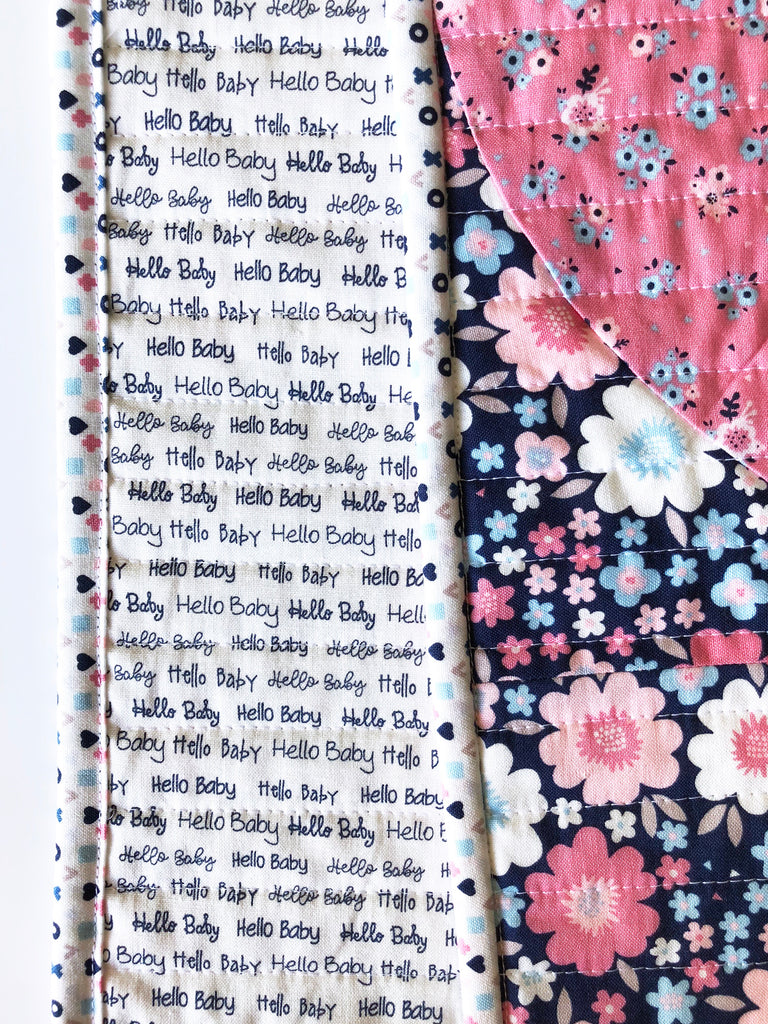 Hello Baby Hello Baby
Hello Baby Hello Baby Hello
Baby Hello Baby Hello Baby
Hello Baby Hello Baby Hello
Baby Hello Baby Hello Baby
Hello Baby Hello Baby Hello
Baby Hello Baby Hello Baby
Hello Baby Hello Baby Hello
Baby Hello Baby Hello Baby
Hello Baby Hello Baby Hello
Baby Hello Baby Hello Baby
Hello Baby Hello Baby Hello
Baby Hello Baby Hello Baby Hello
Hello Baby Hello Baby Hello
Baby Hello Baby Hello Baby Hello
Hello Baby Hello Baby Hello
Baby Hello Baby Hello Baby
Hello Baby Hello Baby Hello Baby
Baby Hello Baby Hello Baby Hello
Hello Baby Hello Baby Hello Baby
Baby Hello Baby Hello Baby Hello
Hello Baby Hello Baby Hello Baby
Baby Hello Baby Hello Baby Hello
Hello Baby Hello Baby Hello Baby
Baby Hello Baby Hello Baby Hello
Hello Baby Hello Baby Hello Baby
Baby Hello Baby Hello Baby Hello
Hello Baby Hello Baby Hello Baby